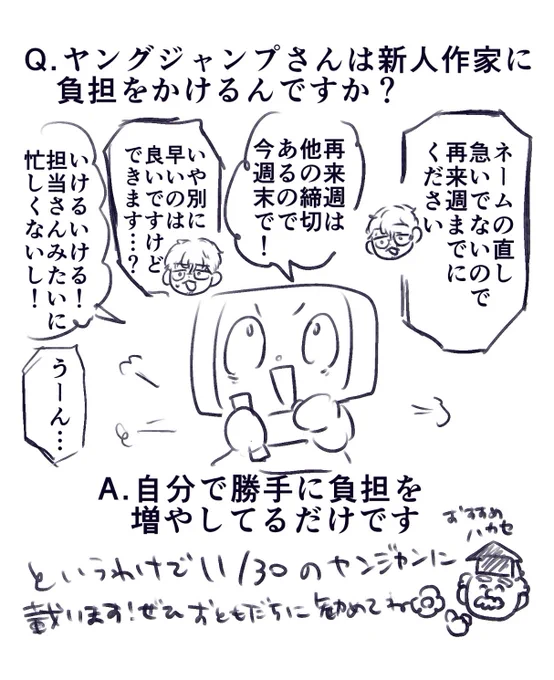 Q.ヤングジャンプさんは新人作家に
負担をかけるんですか？
ネームの直し
急いでないので
再来週までに
ください
再来週は
他の締切
あるので
今週末で！
いや別に
早いのは
良いですけど
できます…？
いけるいける！
担当さんみたいに
忙しくないし！
うーん…
A.自分で勝手に負担を
増やしてるだけです
おすすめ
ハカセ
というわけで11/30のヤンジャンに
載います！ぜひおともだちに勧めてね